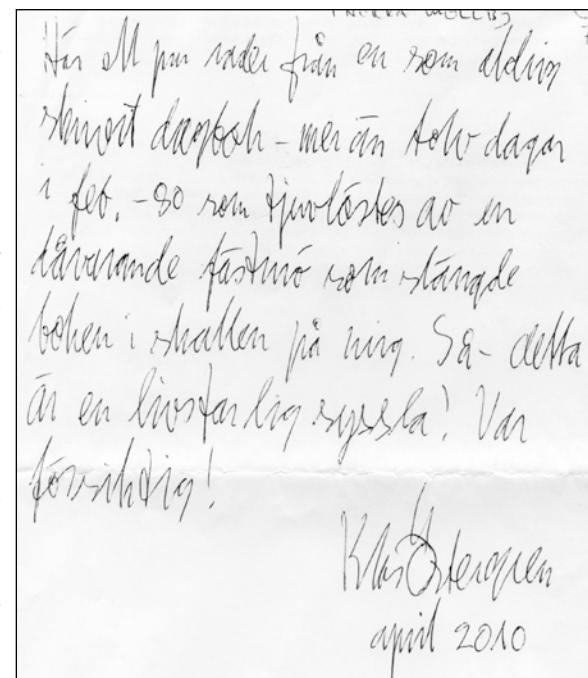 Här ett par rader från en som aldrig
skrivit dagbok - mer än tolv dagar
i feb. -80 som tjuvlästes av en
dåvarande fästmö som slängde
boken i skallen på mig. Så - detta
är en livsfarlig syssla! Var
försiktig!
Klas Östergren
april 2010